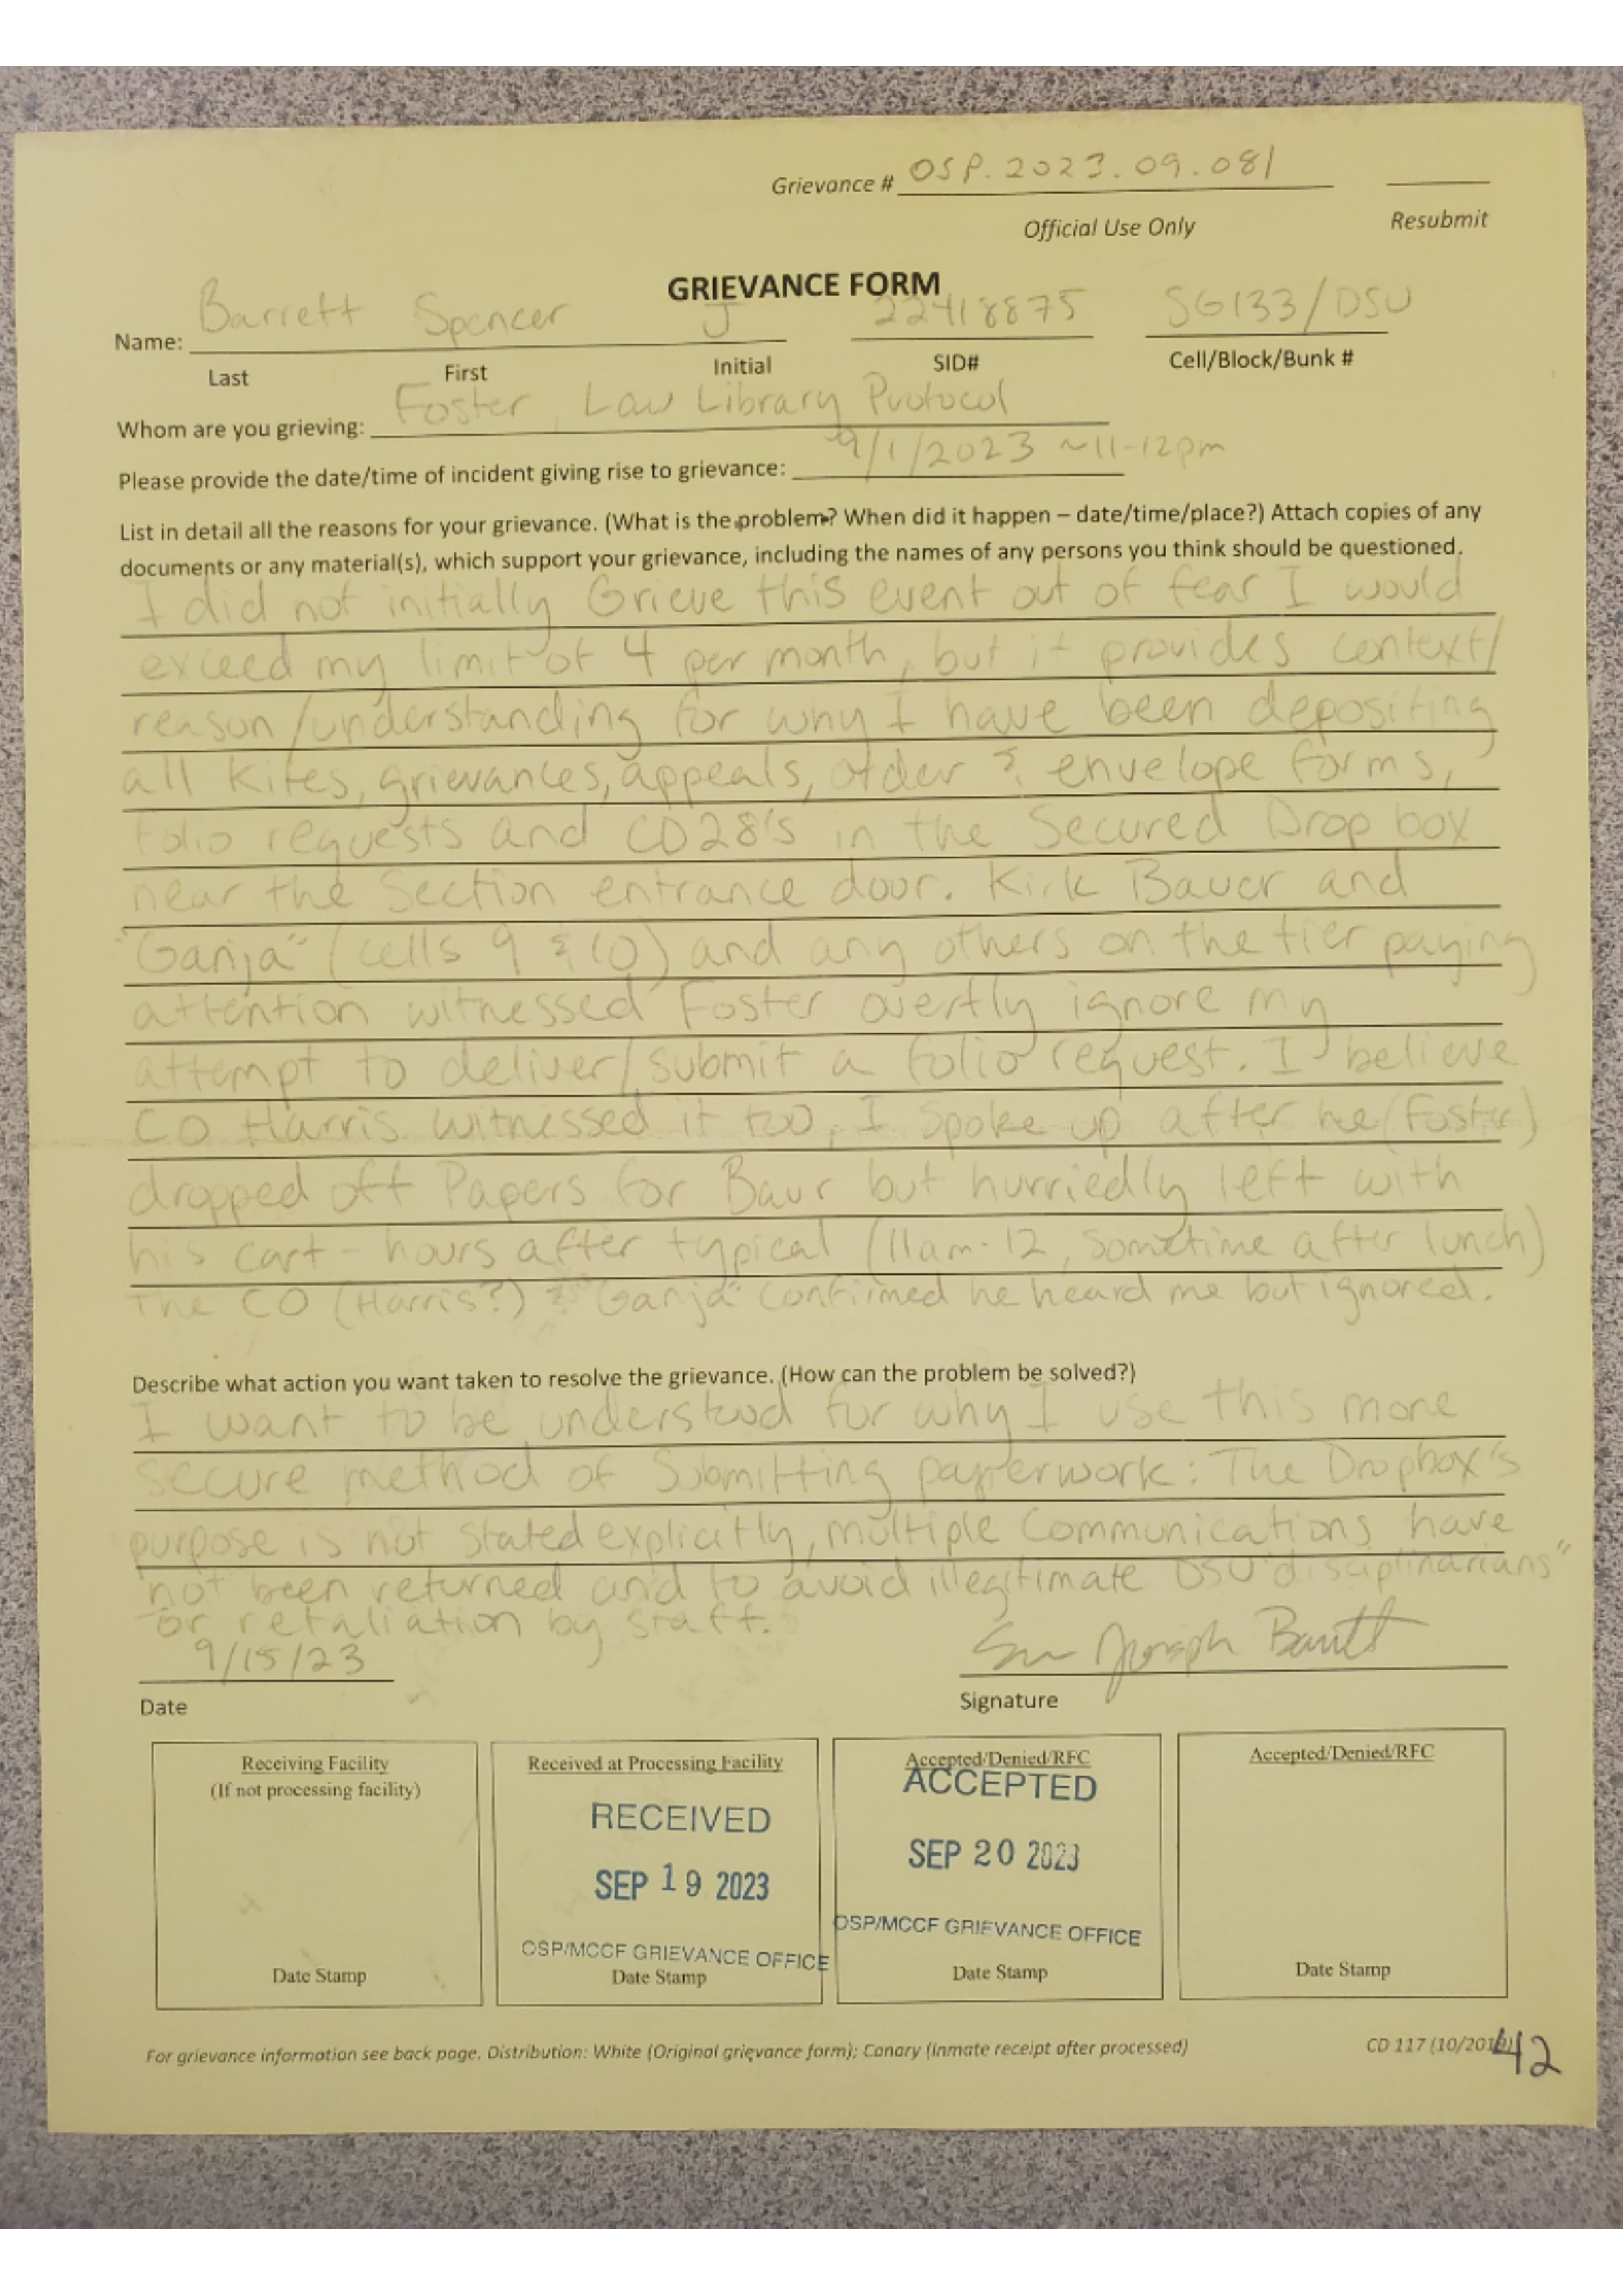 Grievance # OSP.2023.09.081
Official Use Only
Resubmit
GRIEVANCE FORM
Name: Barrett Spencer J 22418875 SG133/DSU
Last First Initial SID# Cell/Block/Bunk #
Whom are you grieving: Foster, Law Library Protocol
Please provide the date/time of incident giving rise to grievance: 9/1/2023 ~11-12pm
List in detail all the reasons for your grievance. (What is the problem? When did it happen – date/time/place?) Attach copies of any
documents or any material(s), which support your grievance, including the names of any persons you think should be questioned.
I did not initially Grieve this event out of fear I would
exceed my limit of 4 per month, but it provides context/
reason/understanding for why I have been depositing
all Kites, grievances, appeals, order & envelope forms,
folio requests and CD28's in the Secured Drop box
near the Section entrance door. Kirk Bauer and
"Ganja" (cells 9 & 10) and any others on the tier paying
attention witnessed Foster overtly ignore my
attempt to deliver/submit a folio request. I believe
CO Harris witnessed it too, I spoke up after he (Foster)
dropped off Papers for Baur but hurriedly left with
his cart - hours after typical (11am-12, Sometime after lunch)
The CO (Harris?) & "Ganja" confirmed he heard me but ignored.
Describe what action you want taken to resolve the grievance. (How can the problem be solved?)
I want to be understood for why I use this more
secure method of Submitting paperwork: The Dropbox's
purpose is not stated explicitly, multiple Communications have
not been returned and to avoid illegitimate DSU "disciplinarians"
or retaliation by staff.
9/15/23
Joseph Barrett
Date
Signature
Receiving Facility
(If not processing facility)
Date Stamp
Received at Processing Facility
RECEIVED
SEP 19 2023
OSP/MCCF GRIEVANCE OFFICE
Date Stamp
Accepted/Denied/RFC
ACCEPTED
SEP 20 2023
OSP/MCCF GRIEVANCE OFFICE
Date Stamp
Accepted/Denied/RFC
Date Stamp
For grievance information see back page. Distribution: White (Original grievance form); Canary (Inmate receipt after processed)
CD 117 (10/2019)
42